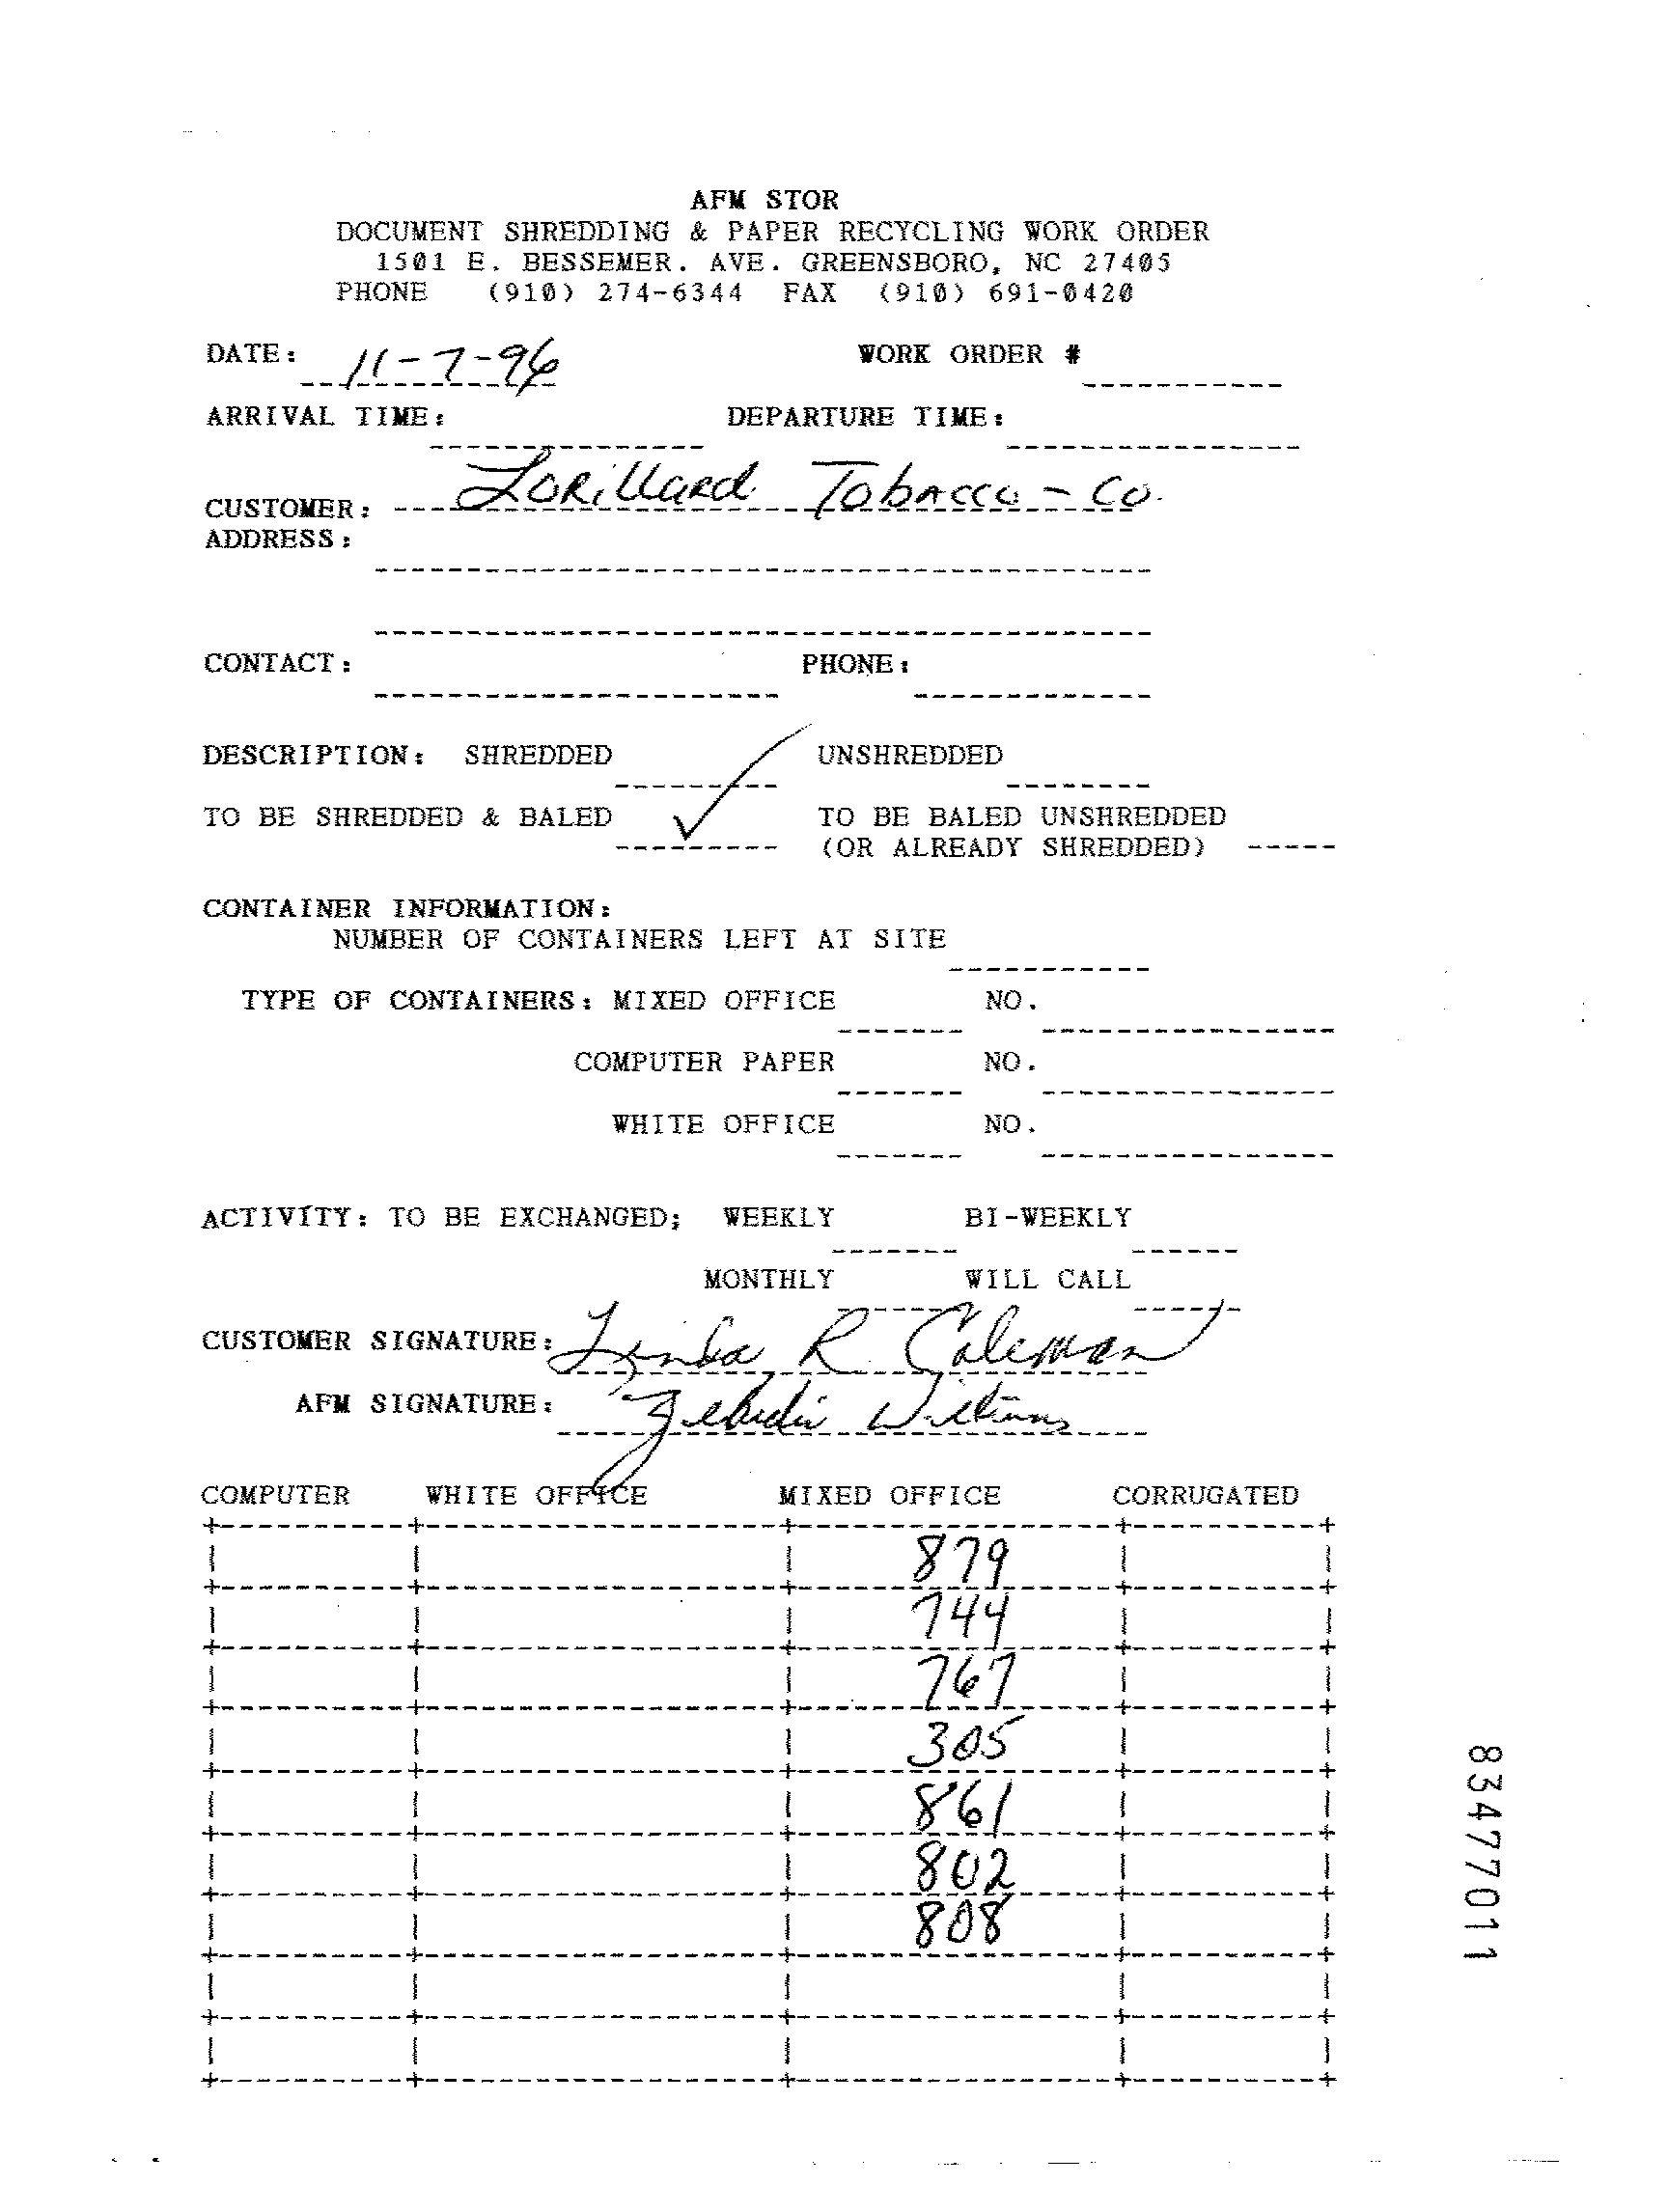 AFM STOR
DOCUMENT SHREDDING & PAPER RECYCLING WORK ORDER
1501 E. BESSEMER. AVE. GREENSBORO, NC 27405
PHONE (910) 274-6344 FAX (910) 691-0420
DATE: 11-7-96 WORK ORDER #
ARRIVAL TIME: DEPARTURE TIME:
CUSTOMER: Lorillard Tobacco - Co.
ADDRESS:
CONTACT: PHONE:
DESCRIPTION: SHREDDED UNSHREDDED
TO BE SHREDDED & BALED ✓ TO BE BALED UNSHREDDED
(OR ALREADY SHREDDED)
CONTAINER INFORMATION:
NUMBER OF CONTAINERS LEFT AT SITE
TYPE OF CONTAINERS: MIXED OFFICE NO.
COMPUTER PAPER NO.
WHITE OFFICE NO.
ACTIVITY: TO BE EXCHANGED; WEEKLY BI-WEEKLY
MONTHLY WILL CALL
CUSTOMER SIGNATURE: Lynda R. Coleman
AFM SIGNATURE:
COMPUTER WHITE OFFICE MIXED OFFICE CORRUGATED
879
744
767
305
861
802
808
83477011